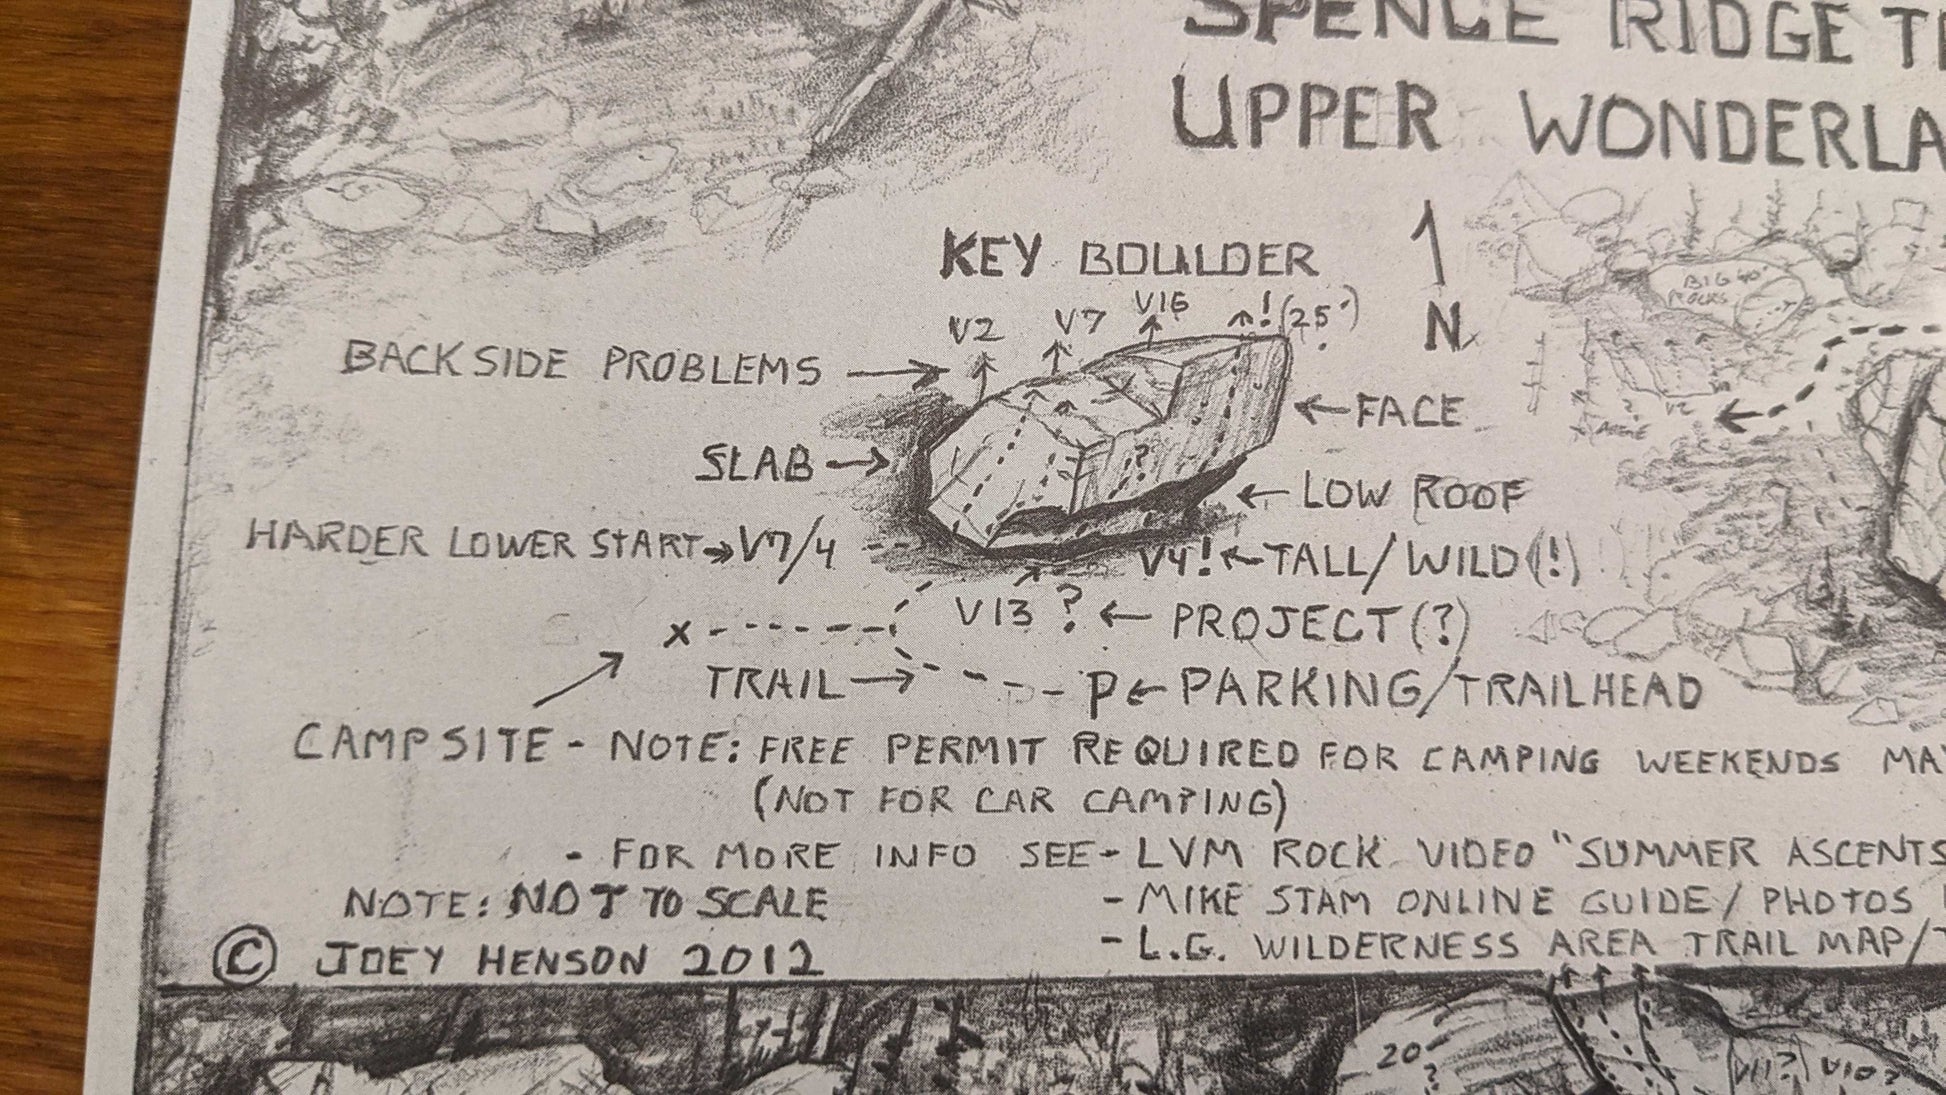 SPENCE RIDGE
UPPER WONDERLA
KEY BOULDER
N
BIG 40'
ROCKS
V2 V7 V16 ! (25')
BACKSIDE PROBLEMS
V2
FACE
SLAB
?
LOW ROOF
HARDER LOWER START V7/4
V4! TALL/WILD (!)
V13 ? PROJECT (?)
X
TRAIL P PARKING/TRAILHEAD
CAMPSITE - NOTE: FREE PERMIT REQUIRED FOR CAMPING WEEKENDS
(NOT FOR CAR CAMPING)
- FOR MORE INFO SEE - LVM ROCK VIDEO "SUMMER ASCENTS
NOTE: NOT TO SCALE
- MIKE STAM ONLINE GUIDE/PHOTOS
© JOEY HENSON 2012
- L.G. WILDERNESS AREA TRAIL MAP/
20
?
V11? V10?